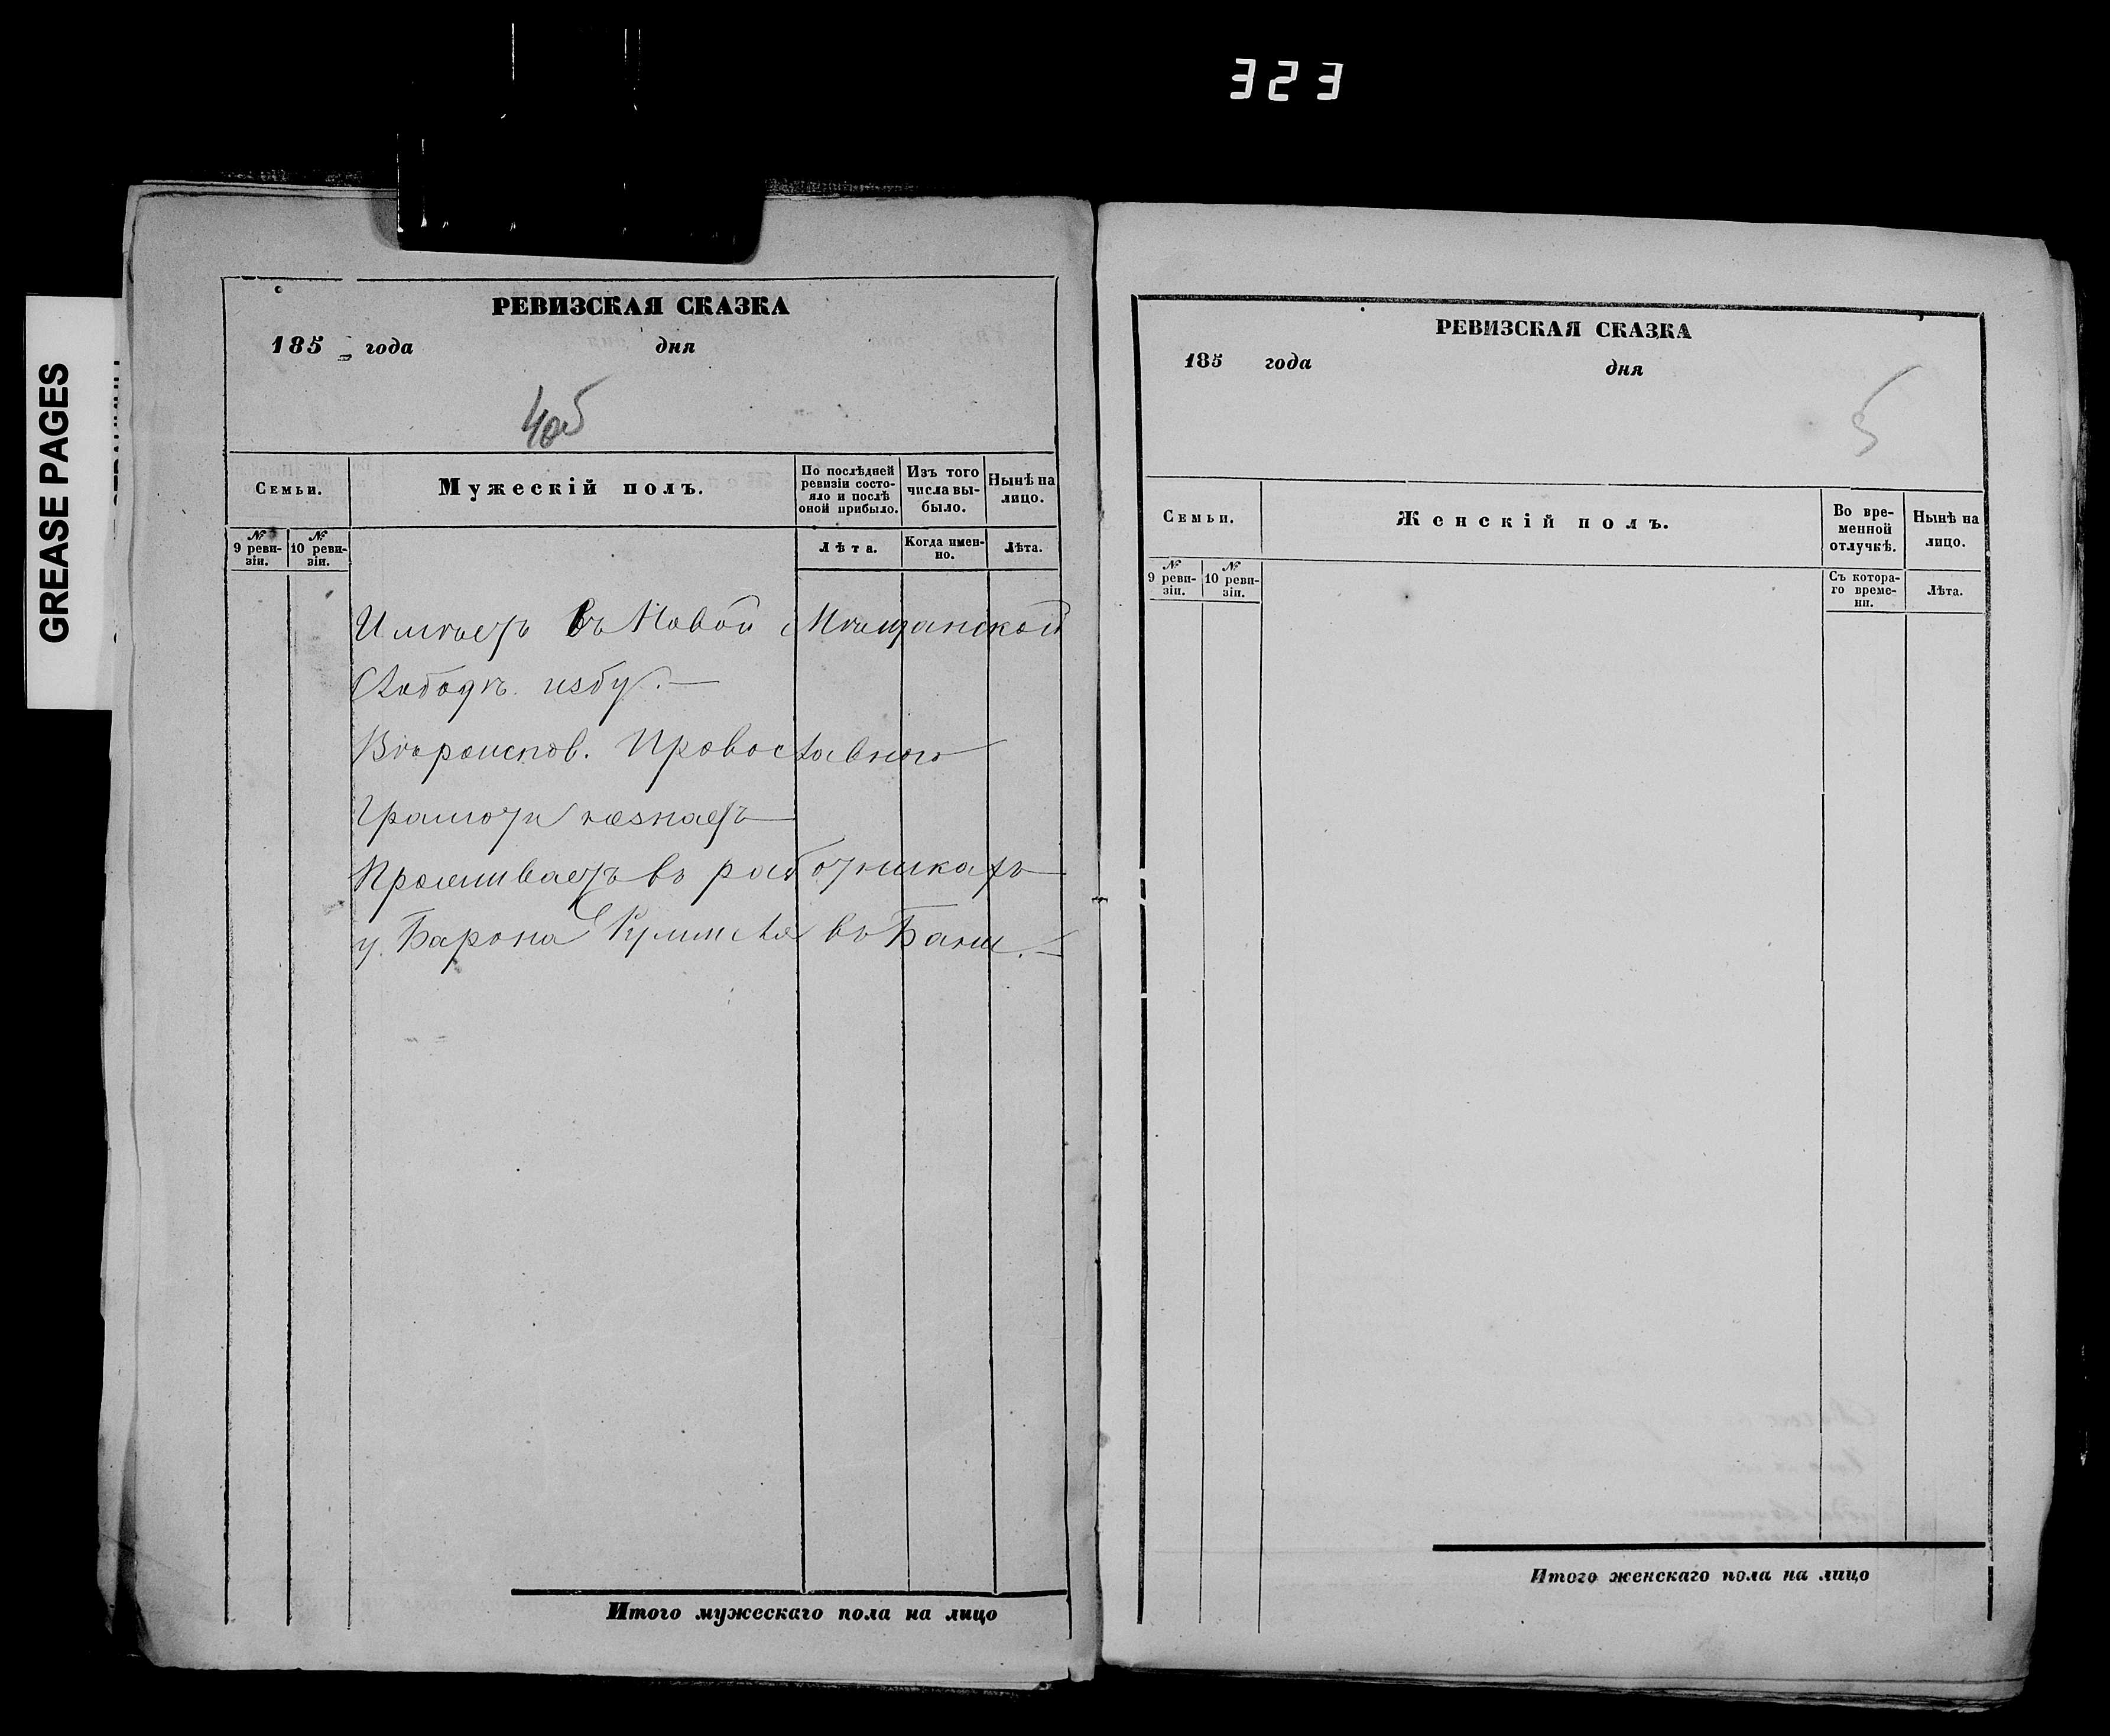 323
GREASE PAGES
РЕВИЗСКАЯ СКАЗКА
185 года дня
Семьи.
Мужескій полъ.
По послѣдней ревизіи состояло и послѣ оной прибыло.
Изъ того числа выбыло.
Нынѣ на лицо.
№ 9 ревизіи.
№ 10 ревизіи.
Лѣта.
Когда именно.
Лѣта.
Имѣетъ въ Новой Мѣщанской
Слободѣ избу.—
Вѣроиспов. Православного
Грамоти незнаетъ
Проживаетъ въ работникахъ
у Барона въ
Итого мужескаго пола на лицо
РЕВИЗСКАЯ СКАЗКА
185 года дня
5
Семьи.
Женскій полъ.
Во временной отлучкѣ.
Нынѣ на лицо.
№ 9 ревизіи.
№ 10 ревизіи.
Съ котораго времени.
Лѣта.
Итого женскаго пола на лицо